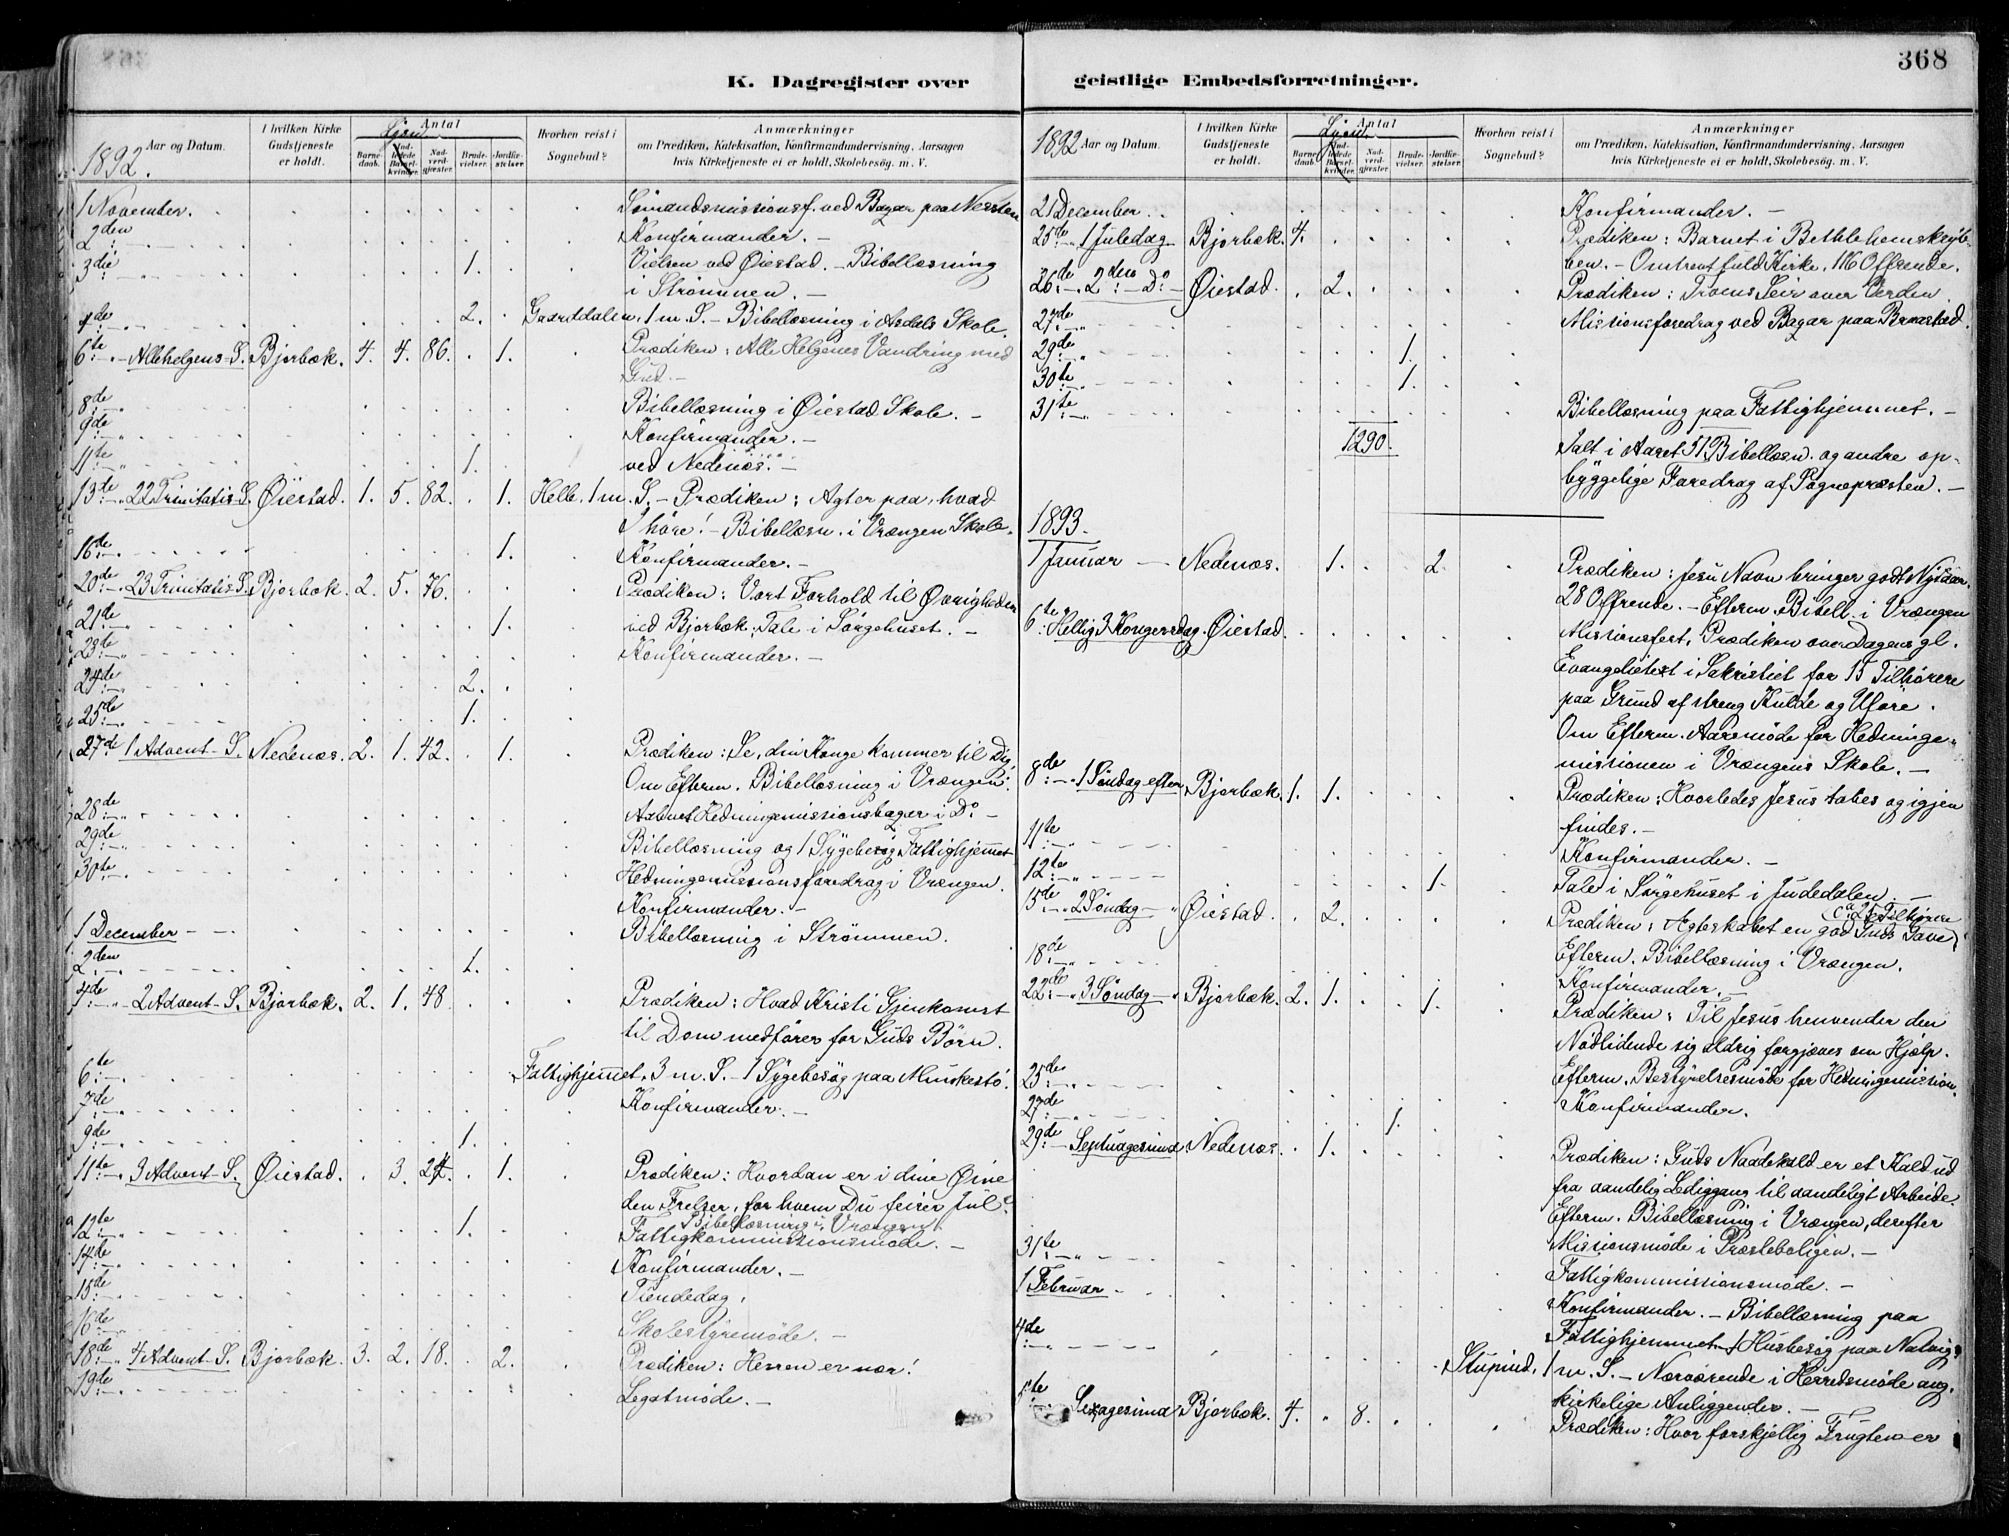 368
K. Dagregister over
Aar og Datum.
I hvilken Kirke Gudstjeneste er holdt.
Antal
Barne-daab.
Ind-ledede Barsel-kvinder.
Nad-verd-gjester.
Brude-vielser.
Jordfæ-stelser.
Hvorhen reist i Sognebud?
Anmærkninger
om Prædiken, Katekisation, Konfirmandundervisning. Aarsagen
hvis Kirketjeneste ei er holdt, Skolebesøg. m. V.
1892.
1 November. Sømandsmissionsf. ved Bazar paa
2den Konfirmander. —
3die 1. Vielsen ved Øiestad. — Bibellæsning
i Strømmen. —
4de 2. 1 m. S. — Bibellæsning i Asdals Skole.
6te " Allehelgens-S. Bjorbæk. 4. 4. 86. . 1. Prædiken: Alle Helgenes Vandring med
Gud. —
8de Bibellæsning i Øiestad Skole. —
9de Konfirmander. —
11te 1. ved Nedenæs. —
13de " 22 Trinitatis-S. Øiestad. 1. 5. 82. . 1. Helle. 1 m. S. — Prædiken: Agter paa, hvad
I høre! — Bibellæsn. i Vrængen Skole.
16de 1. Konfirmander. —
20de 23 Trinitatis S. Bjorbæk. 2. 5. 76. Prædiken: Vort Forhold til Øvrigheden
21de 1. ved Bjorbæk; Tale i Sørgehuset. —
23de Konfirmander. —
24de 2.
25de 1.
27de 1 Advent-S. Nedenæs. 2. 1. 42. . 1. Prædiken: Se, din Konge kommer til Dig.
Om Efterm. Bibellæsning i Vrængen.
28de Hedningemissionsbazar i Do —
29de Bibellæsning og 1 Sygebesøg Fattighjemmet
30te Hedningemissionsforedrag i Vrængen.
Konfirmander. —
1 December Bibellæsning i Strømmen.
2den 1.
4de " 2 Advent-S. Bjorbæk. 2. 1. 48. Prædiken: Hvad Kristi Gjenkomst
til Dom medfører for Guds Børn.
6te Fattighjemmet. 3 m. S. — 1 Sygebesøg paa
7de Konfirmander. —
9de 1.
11te 3 Advent-S. Øiestad. . 3. 24. . 1. Prædiken: Hvordan er i dine Øine
den Frelser, for hvem Du feirer Jul?
Bibellæsning i Vrængen.
12te 1. Fattigkommissionsmøde. —
14de Konfirmander. —
15de Tiendedag.
16de Skolestyremøde. —
18de " 4 Advent-S. Bjorbæk. 3. 2. 18. . 2. Prædiken: Herren er nær!
19de Legatmøde. —
geistlige Embedsforretninger.
Aar og Datum.
I hvilken Kirke Gudstjeneste er holdt.
Antal
Barne-daab.
Ind-ledede Barsel-kvinder.
Nad-verd-gjester.
Brude-vielser.
Jordfæ-stelser.
Hvorhen reist i Sognebud?
Anmærkninger
om Prædiken, Katekisation, Konfirmandundervisning. Aarsagen
hvis Kirketjeneste ei er holdt, Skolebesøg. m. V.
1892
21 December Konfirmander. —
25de " 1 Juledag Bjorbæk. 4. Prædiken: Barnet i Bethlehemskryb-
ben. — Omtrent fuld Kirke. 116 Offrende.
26de 2den Do Øiestad. . 2. Prædiken: Troens Seir over Verden
27de Missionsforedrag ved Bazar paa
29de 1.
30te 1.
31te Bibellæsning paa Fattighjemmet. —
1290. Ialt i Aaret 51 Bibellæsn. og andre op-
byggelige Foredrag af Sognepræsten. —
1893.
1 Januar — Nedenæs. . 1. . . 2. Prædiken: Jesu Navn bringer godt Nytaar
28 Offrende. — Efterm. Bibell. i Vrængen
6te Hellig 3 Kongersdag. Øiestad. Missionsfest, Prædiken over Dagens gl.
Evangelietext i Sakristiet for 15 Tilhørere
paa Grund af streng Kulde og Uføre.
Om Efterm. Aaremøde for Hedninge-
missionen i Vrængens Skole. —
8de " 1 Søndag efter Bjorbæk. 1. 1. Prædiken: Hvorledes Jesus tabes og igjen
findes. —
11te Konfirmander. —
12te 1. Tale i Sørgehuset i Judedalen. —
15de " 2 Søndag — " Øiestad. . 2. Prædiken: Ægteskabet en god Guds Gave.
(Ca 25 Tilhørere)
Efterm. Bibellæsning i Vrængen.
18de Konfirmander. —
22de " 3 Søndag — " Bjorbæk. 2. 1. . . 1. Prædiken: Til Jesus henvender den
Nødlidende sig aldrig forgjæves om Hjælp.
Efterm. Bestyrelsesmøde for Hedningemission.
25de Konfirmander.
27de 1.
29de Septuagesima Nedenæs. . 1. Prædiken: Guds Naadekald er et Kald ud
fra aandelig Lediggang til aandeligt Arbeide.
Efterm. Bibellæsning i Vrængen, derefter
Missionsmøde i Præsteboligen. —
31te Fattigkommissionsmøde. —
1 Februar Konfirmander. — Bibellæsning paa
Fattighjemmet. 1 Husbesøg paa Natvig.
4de Stupind. 1 m. S. — Nærværende i Herredsmøde ang.
kirkelige Anliggender. —
5te Sexagesima Bjorbæk. 4. " 8. Prædiken: Hvor forskjellig Frugten er